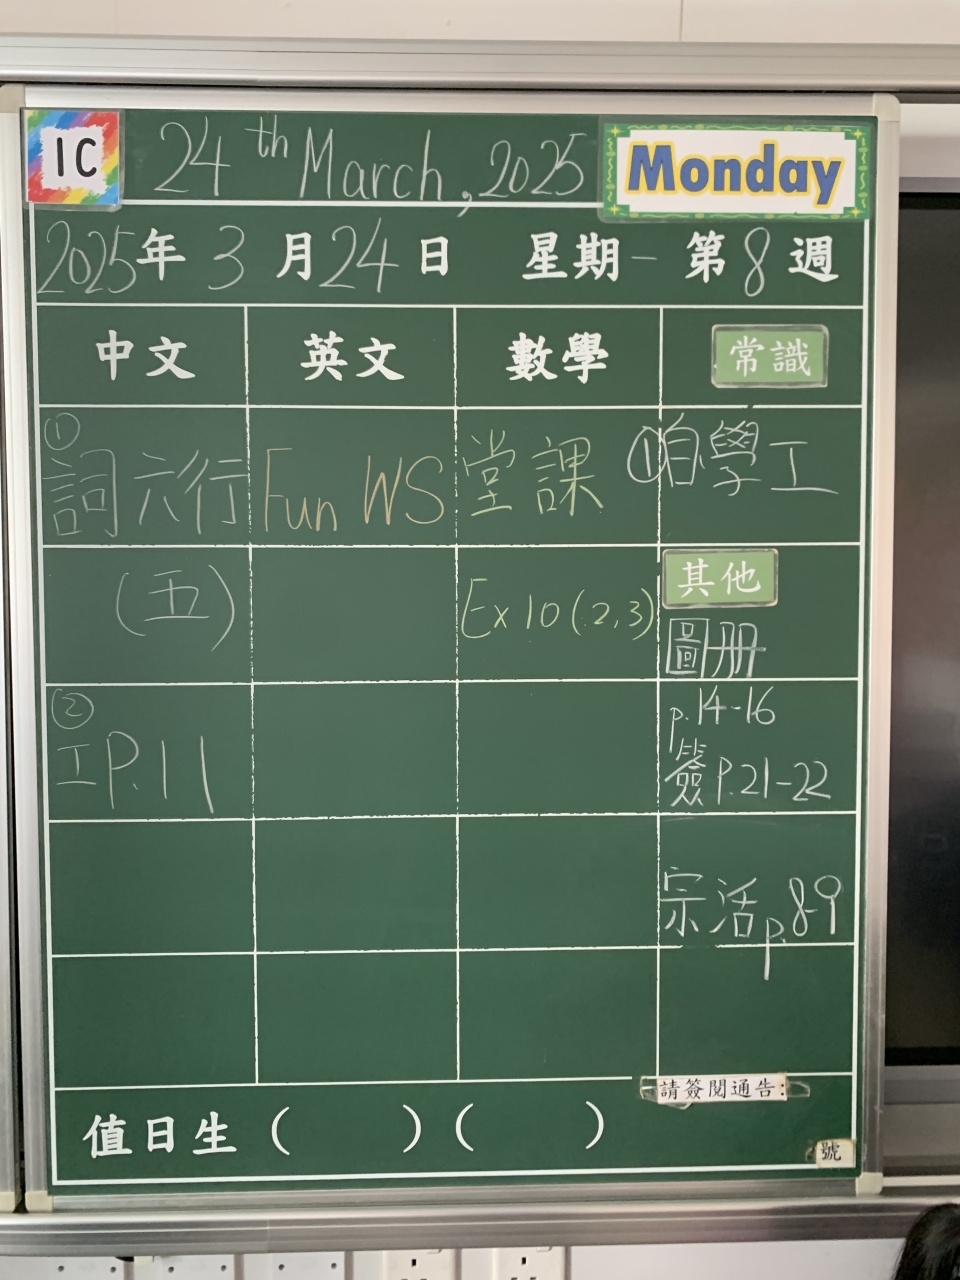 1C 24th March, 2025 Monday
2025年3月24日 星期一 第8週
中文 英文 數學 常識
① 詞六行 Fun WS 堂課 ①自學工
(五) Ex 10 (2,3) 其他
圖冊
② 工P.11 p.14-16
簽P.21-22
宗活p.8-9
請簽閱通告:
值日生( )( )
號